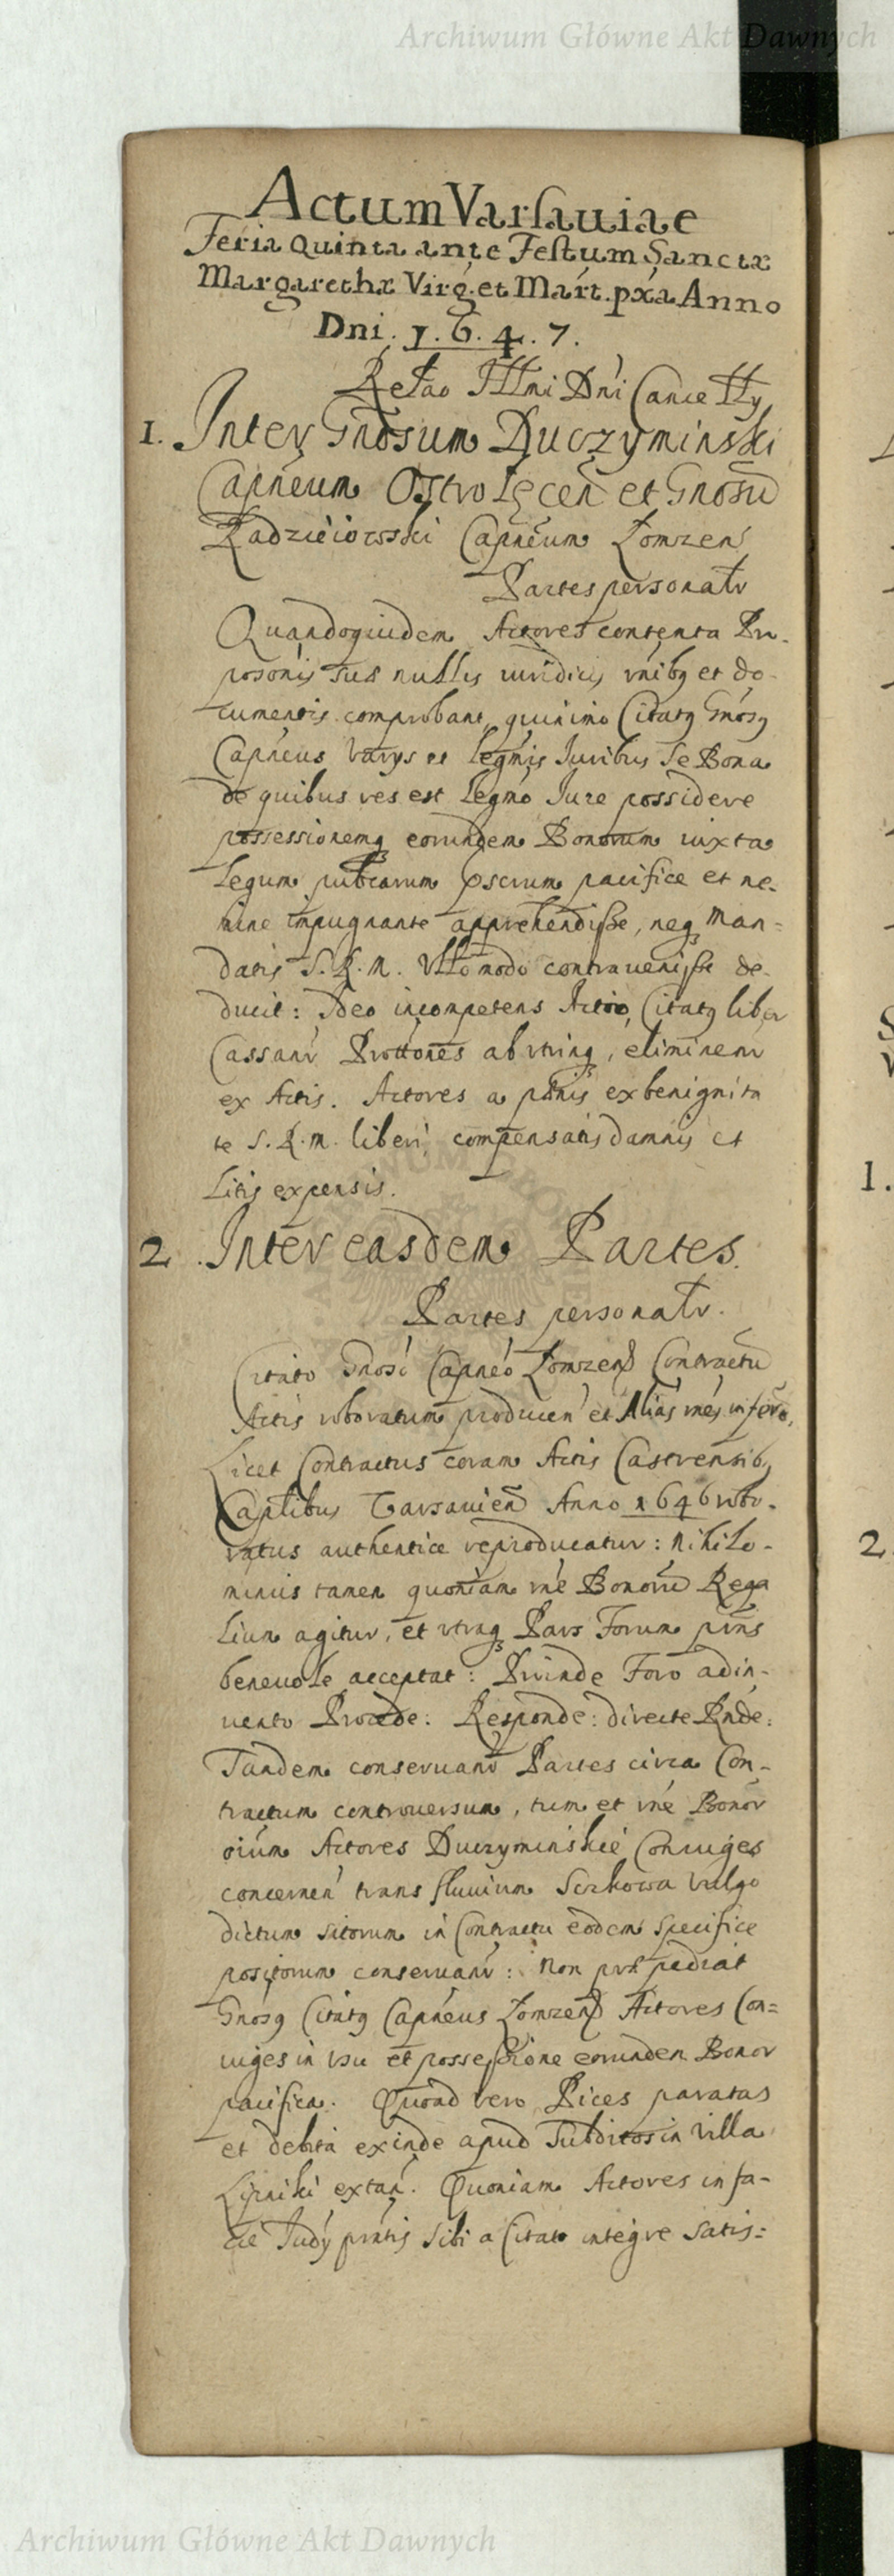 Archiwum Główne Akt Dawnych
Actum Varsauiae
Feria Quinta ante Festum Sanctæ
Margarethæ Virg. et Mart. pxa Anno
Dni. 1. 6. 4. 7.
Relao Illmi Dni Cancelly
1. Inter Gnosum Duczyminski
Capneum Ostrolęcen et Gnosu
Radzieiowski Capneum Łomzen
Partes personatr
Quandoquidem Actores contenta Pro-
posonis suæ nullis iuridicis rnibq et do-
cumentis comprobant, quinimo Citatq Gnosq
Capneus varys et legmis Juribus se Bona
de quibus res est legmo Jure possidere
possessionemq eorundem Bonorum iuxta
legum publcarum pscrum pacifice et ne-
mine impugnante apprehendisse, neq Man-
datis S. R. M. Ullo modo contravenisse de-
ducit: Ideo incompetens Actio, Citatq liber
Cassanr Prottones ab vtrinq, eliminenr
ex Actis. Actores a pænis ex benignita
te S. R. M. liberi compensatis damnis et
Litis expensis.
2. Inter easdem Partes.
Partes personatr.
Citato Gnoso Capneo Łomzen Contractu
Actis roboratum producen et Alias rnes infero,
Licet Contractus coram Actis Castrensibq
Captlibus Varsavien Anno 1646 robo-
ratus authentice reproducatur: nihilo-
minus tamen quoniam rne Bonoru Rega
lium agitur, et vtraq Pars Forum prns
beneuole acceptat: Proinde Foro adin-
uento Procede: Responde: directe Rnde:
Tandem conseruanr Partes circa Con-
tractum controuersum, tum et rne Bonor
oium Actores Duczyminskie Coniuges
concernen trans fluuium Szkowa vulgo
dictum sitorum in Contractu eodem specifice
positorum conseruanr: Non præpediat
Gnosq Citatq Capneus Łomzen Actores Con=
iuges in vsu et possessione eorunden Bonor
pacifica. Quoad vero Pices paratas
et debita exinde apud Subditos in Villa
Lipniki extan. Quoniam Actores in fa-
cie Judy prntis sibi a Citato integre satis=
1.
2.
Archiwum Główne Akt Dawnych